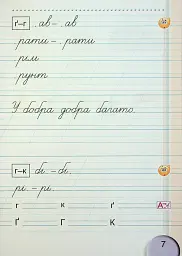 ґ–г .ав – .ав
.рати – .рати
.рім
.рунт
У бобра добра багато.
г–к бі. – бі.
рі. – рі.
г к ґ
Ґ Г К
7